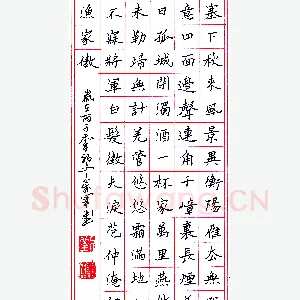 塞下秋来風景異衡陽雁去無
意四面邊聲連角千嶂裏長煙
日孤城閉濁酒一杯家萬里燕
未勒歸無計羌管悠悠霜滿
不寐將軍白髮夫淚范仲淹
漁家傲